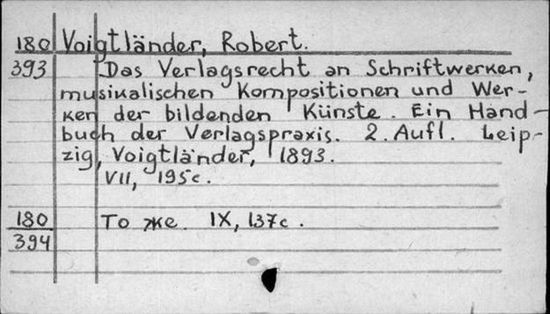 180 Voigtländer, Robert.
393 Das Verlagsrecht an Schriftwerken,
musikalischen Kompositionen und Wer-
ken der bildenden Künste. Ein Hand-
buch der Verlagspraxis. 2. Aufl. Leip-
zig, Voigtländer, 1893.
VII, 195с.
180 То же. IX, 137с.
394